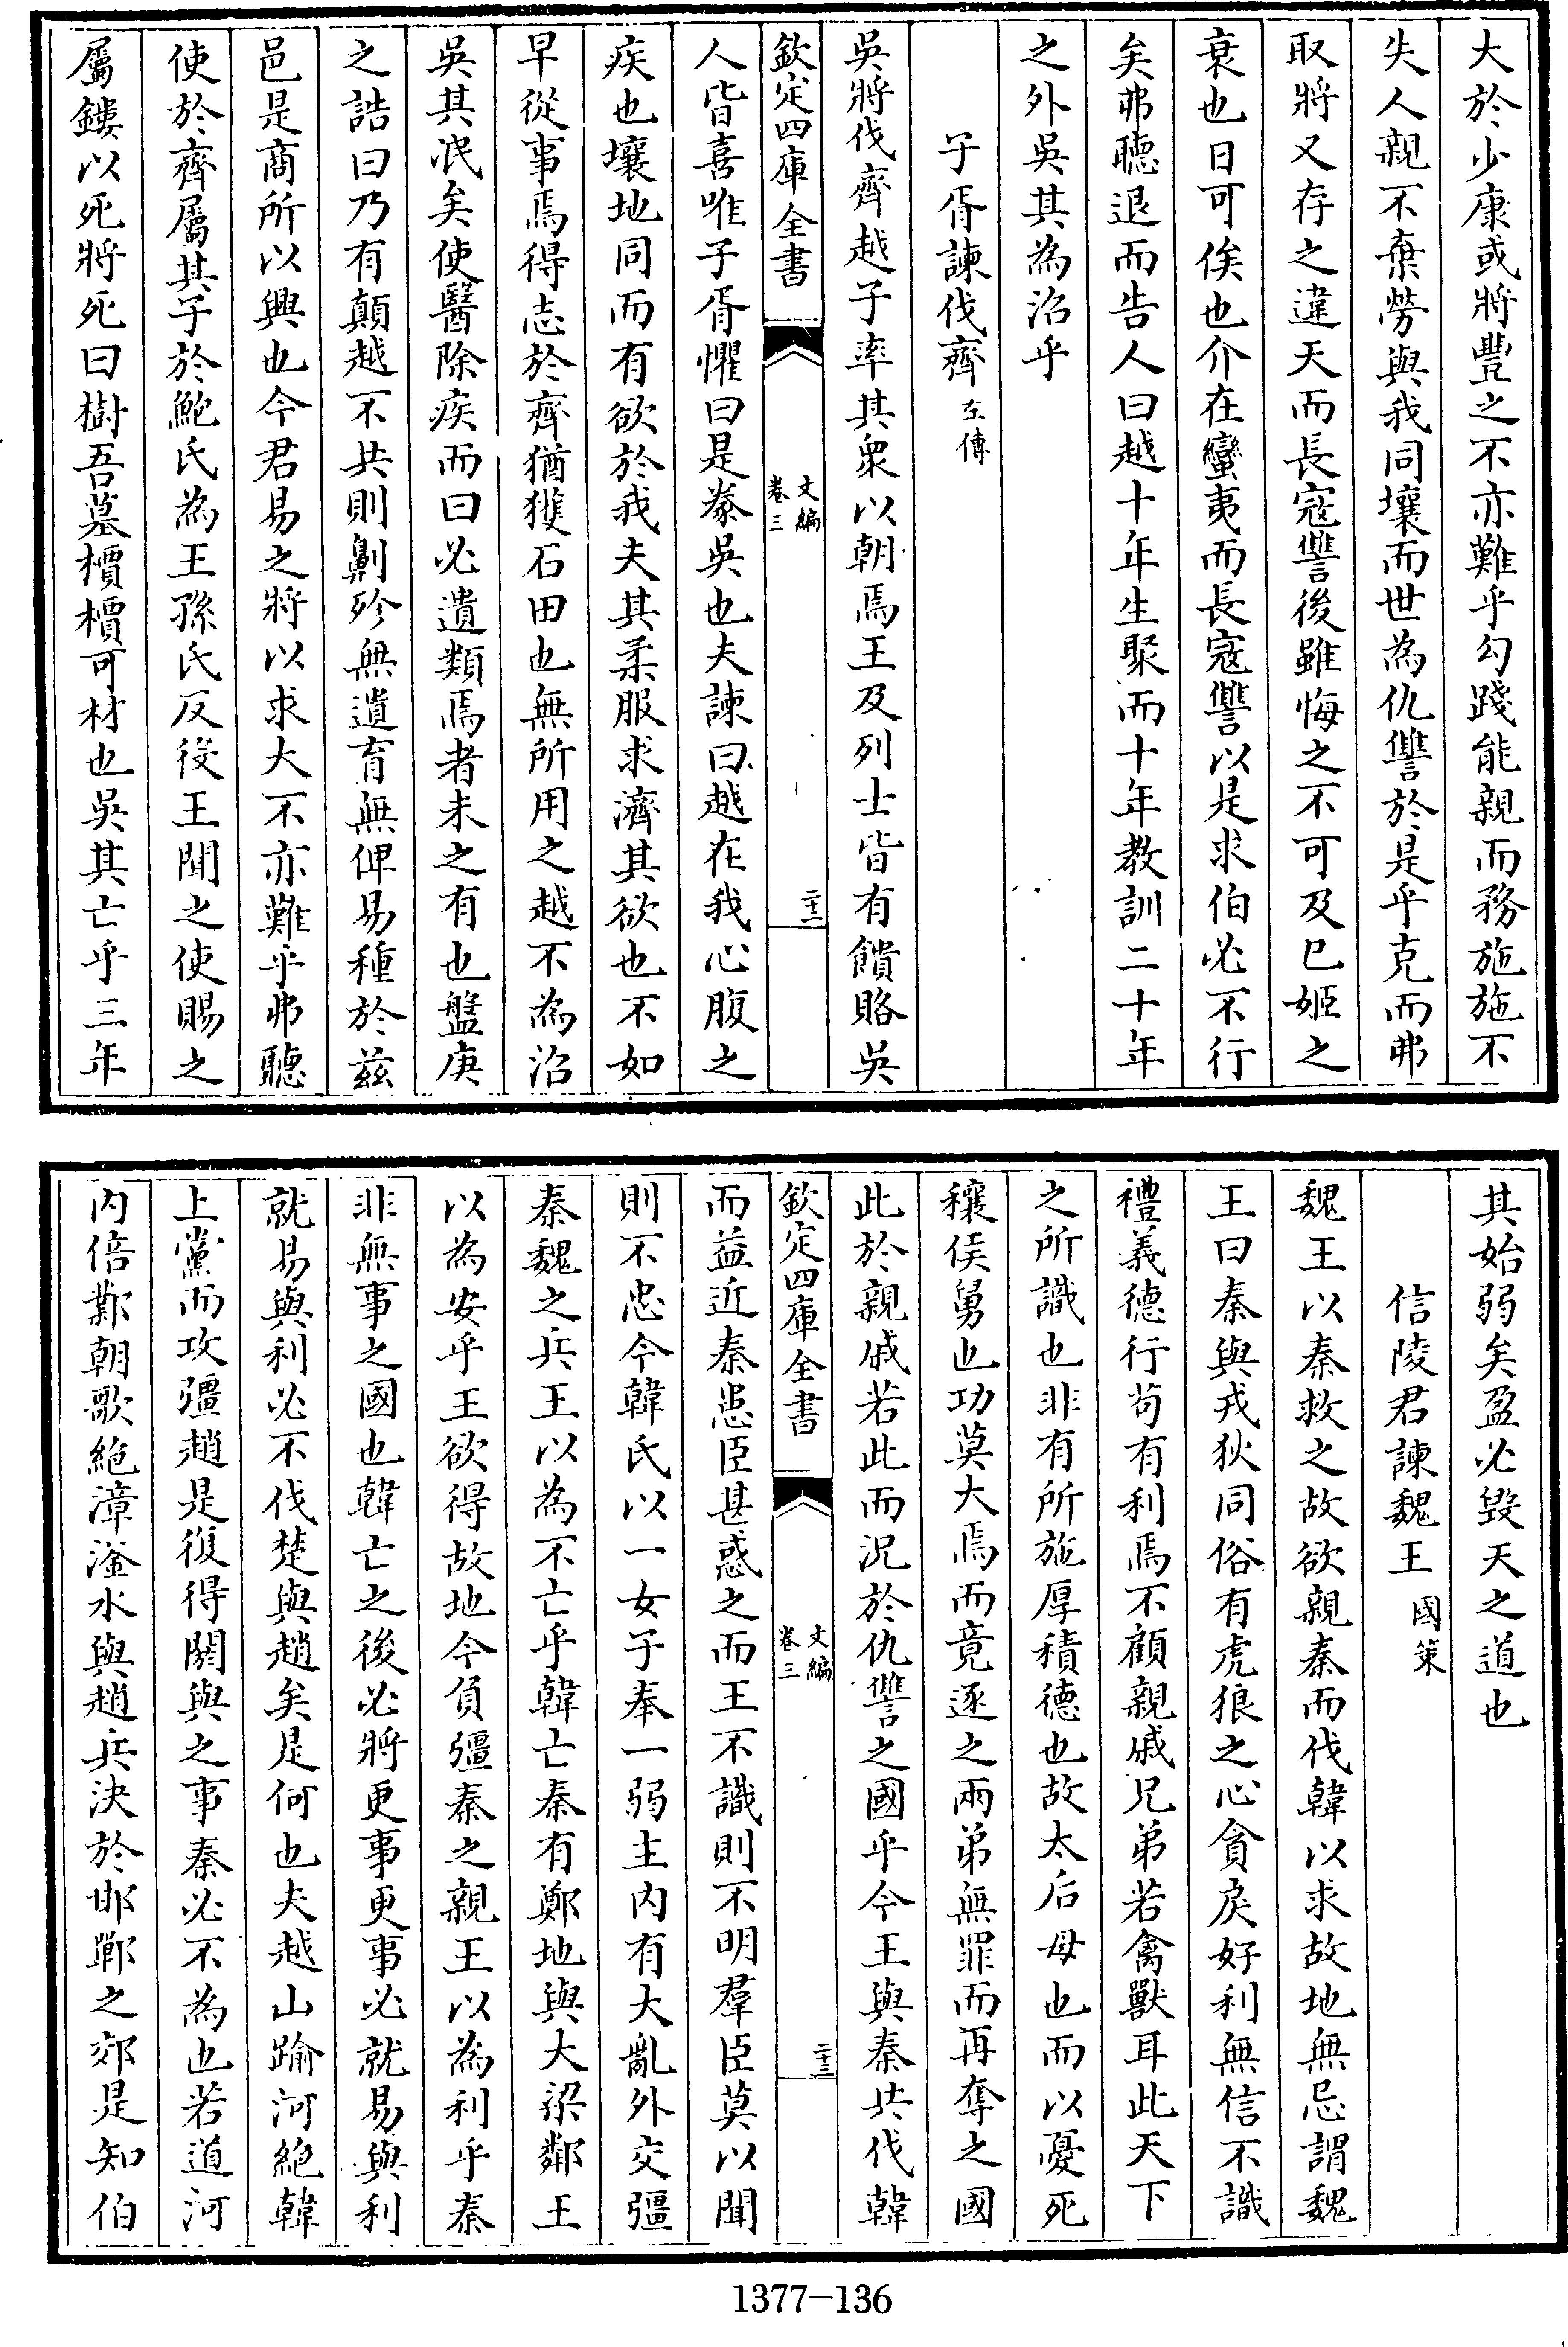 大於少康或將豐之不亦難乎勾踐能親而務施施不
失人親不棄勞與我同壤而世為仇讐於是乎克而弗
取將又存之違天而長寇讐後雖悔之不可及已姬之
衰也日可俟也介在蠻夷而長寇讐以是求伯必不行
矣弗聽退而告人曰越十年生聚而十年教訓二十年
之外吳其為沼乎
子胥諫伐齊 左傳
吳將伐齊越子率其衆以朝焉王及列士皆有饋賂吳
欽定四庫全書
文編
卷三
二十二
人皆喜唯子胥懼曰是豢吳也夫諫曰越在我心腹之
疾也壤地同而有欲於我夫其柔服求濟其欲也不如
早從事焉得志於齊猶獲石田也無所用之越不為沼
吳其泯矣使醫除疾而曰必遺類焉者未之有也盤庚
之誥曰乃有顛越不共則劓殄無遺育無俾易種於兹
邑是商所以興也今君易之將以求大不亦難乎弗聽
使於齊屬其子於鮑氏為王孫氏反役王聞之使賜之
屬鏤以死將死曰樹吾墓檟檟可材也吳其亡乎三年
其始弱矣盈必毀天之道也
信陵君諫魏王 國策
魏王以秦救之故欲親秦而伐韓以求故地無忌謂魏
王曰秦與戎狄同俗有虎狼之心貪戾好利無信不識
禮義德行茍有利焉不顧親戚兄弟若禽獸耳此天下
之所識也非有所施厚積德也故太后母也而以憂死
穰侯舅也功莫大焉而竟逐之兩弟無罪而再奪之國
此於親戚若此而況於仇讐之國乎今王與秦共伐韓
欽定四庫全書
文編
卷三
二十三
而益近秦患臣甚惑之而王不識則不明羣臣莫以聞
則不忠今韓氏以一女子奉一弱主内有大亂外交彊
秦魏之兵王以為不亡乎韓亡秦有鄭地與大梁鄰王
以為安乎王欲得故地今負彊秦之親王以為利乎秦
非無事之國也韓亡之後必將更事更事必就易與利
就易與利必不伐楚與趙矣是何也夫越山踰河絶韓
上黨而攻彊趙是復得閼與之事秦必不為也若道河
内倍鄴朝歌絶漳滏水與趙兵決於邯鄲之郊是知伯
1377—136